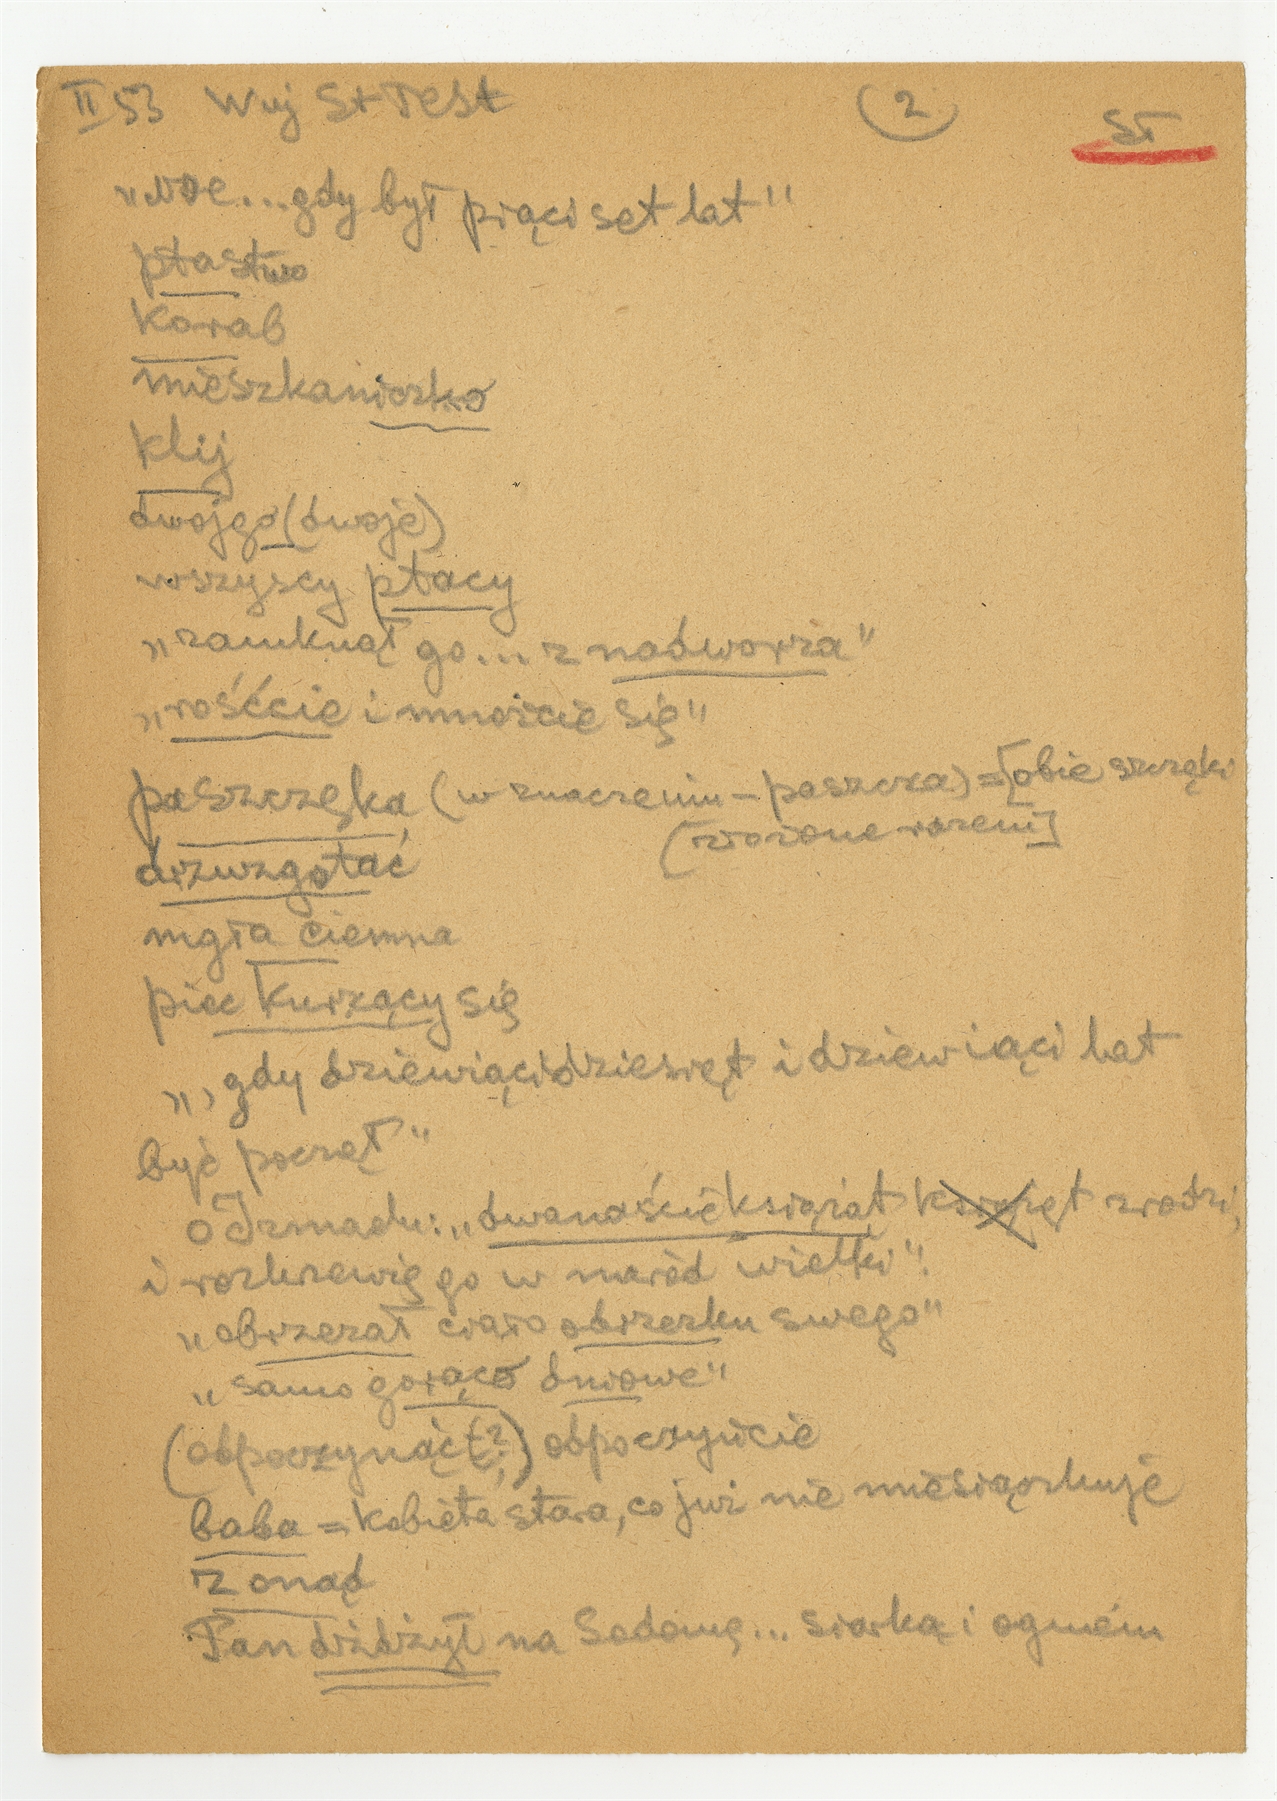 II 53 Wuj St Test (2) St
„Noe...gdy był piąci set lat"
ptastwo
korab
mieszkaniczko
klij
dwojgo (dwoje)
wszyscy ptacy
„zamknął go... z nadworza"
„rośćcie i mnożcie się"
paszczęka (w znaczeniu – paszcza) = [obie szczęki
(złożone razem]
drzwzgotać
mgła ciemna
piec kurzący się
„, gdy dziewiącidziesiąt i dziewiąci lat
być począł"
o Izmaelu: „dwanaście książąt książęt zrodzi,
i rozkrzewię go w naród wielki".
„obrzezał ciało obrzezku swego"
„samo gorąco dniowe"
(odpoczynąć?) odpoczyńcie
baba = kobieta stara, co już nie miesiączkuje
z onąd
Pan dżdżył na Sodomę... siarką i ogniem